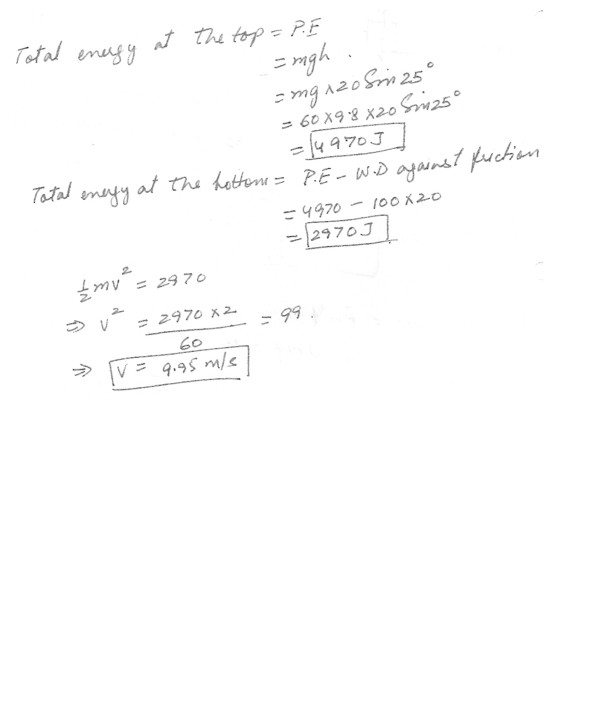 Total energy at the top = P.E
= mgh.
= mg × 20 Sin 25°
= 60 × 9.8 × 20 Sin 25°
= 4970 J
Total energy at the bottom = P.E - W.D against friction
= 4970 - 100 × 20
= 2970 J
½mv² = 2970
⇒ v² = 2970 × 2 / 60 = 99.
⇒ V = 9.95 m/s